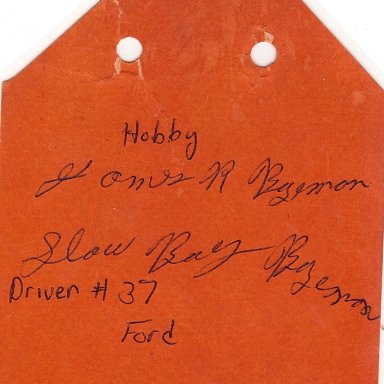 Hobby
James R Bozeman
Slow Boy Bozeman
Driver # 37
Ford